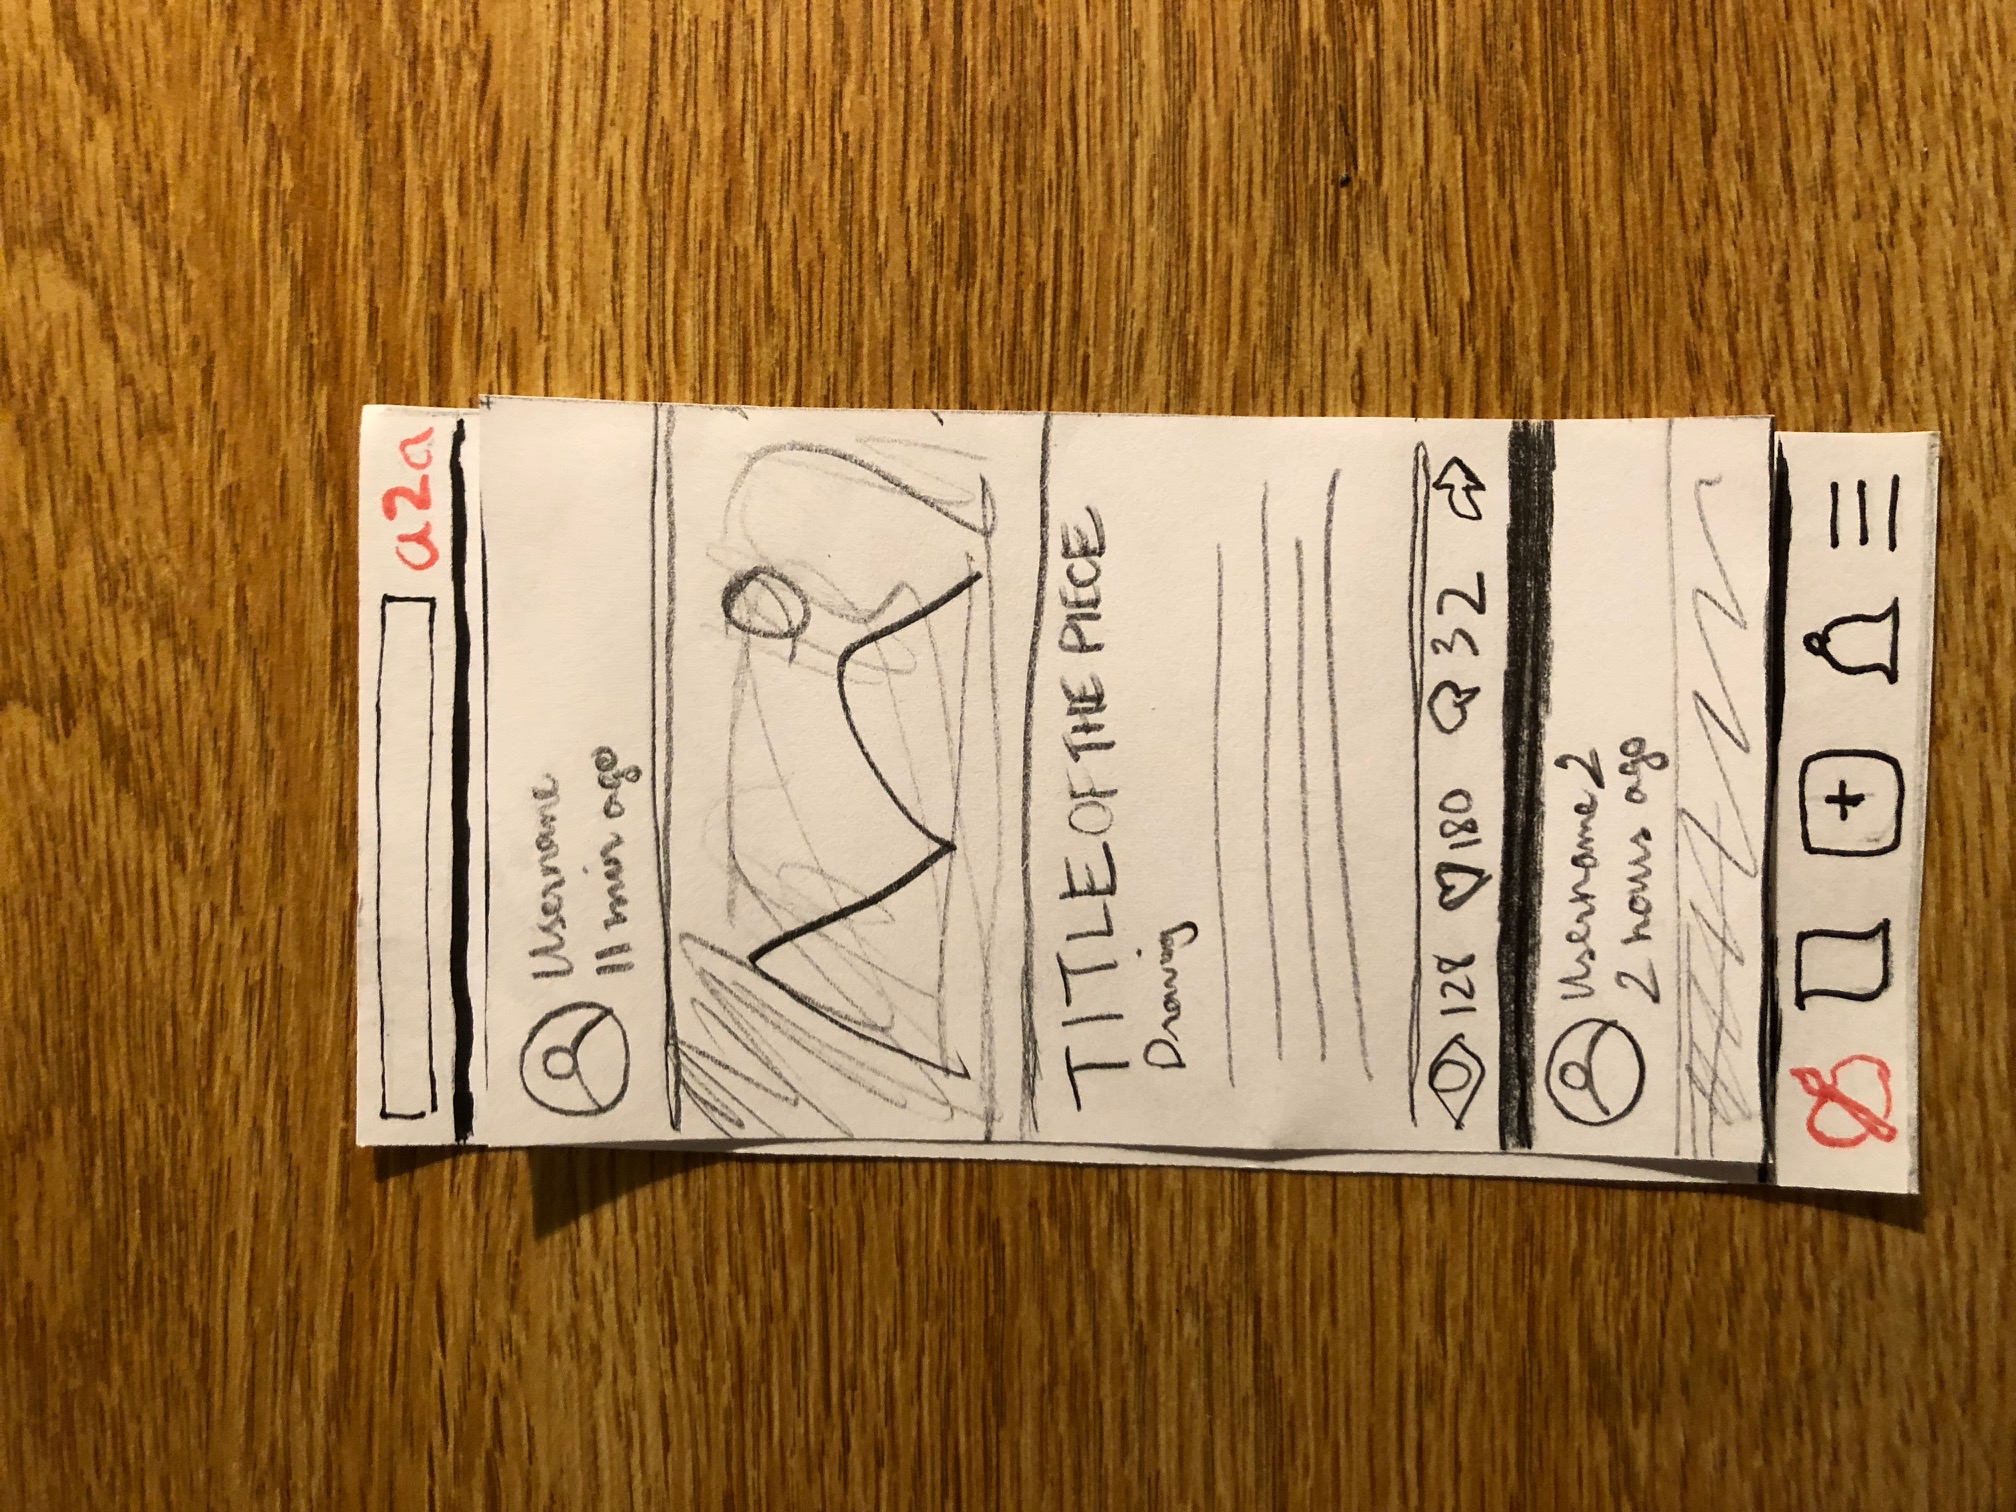 a2a
Username
11 min ago
TITLE OF THE PIECE
Drawing
128 180 32
Username 2
2 hours ago
+